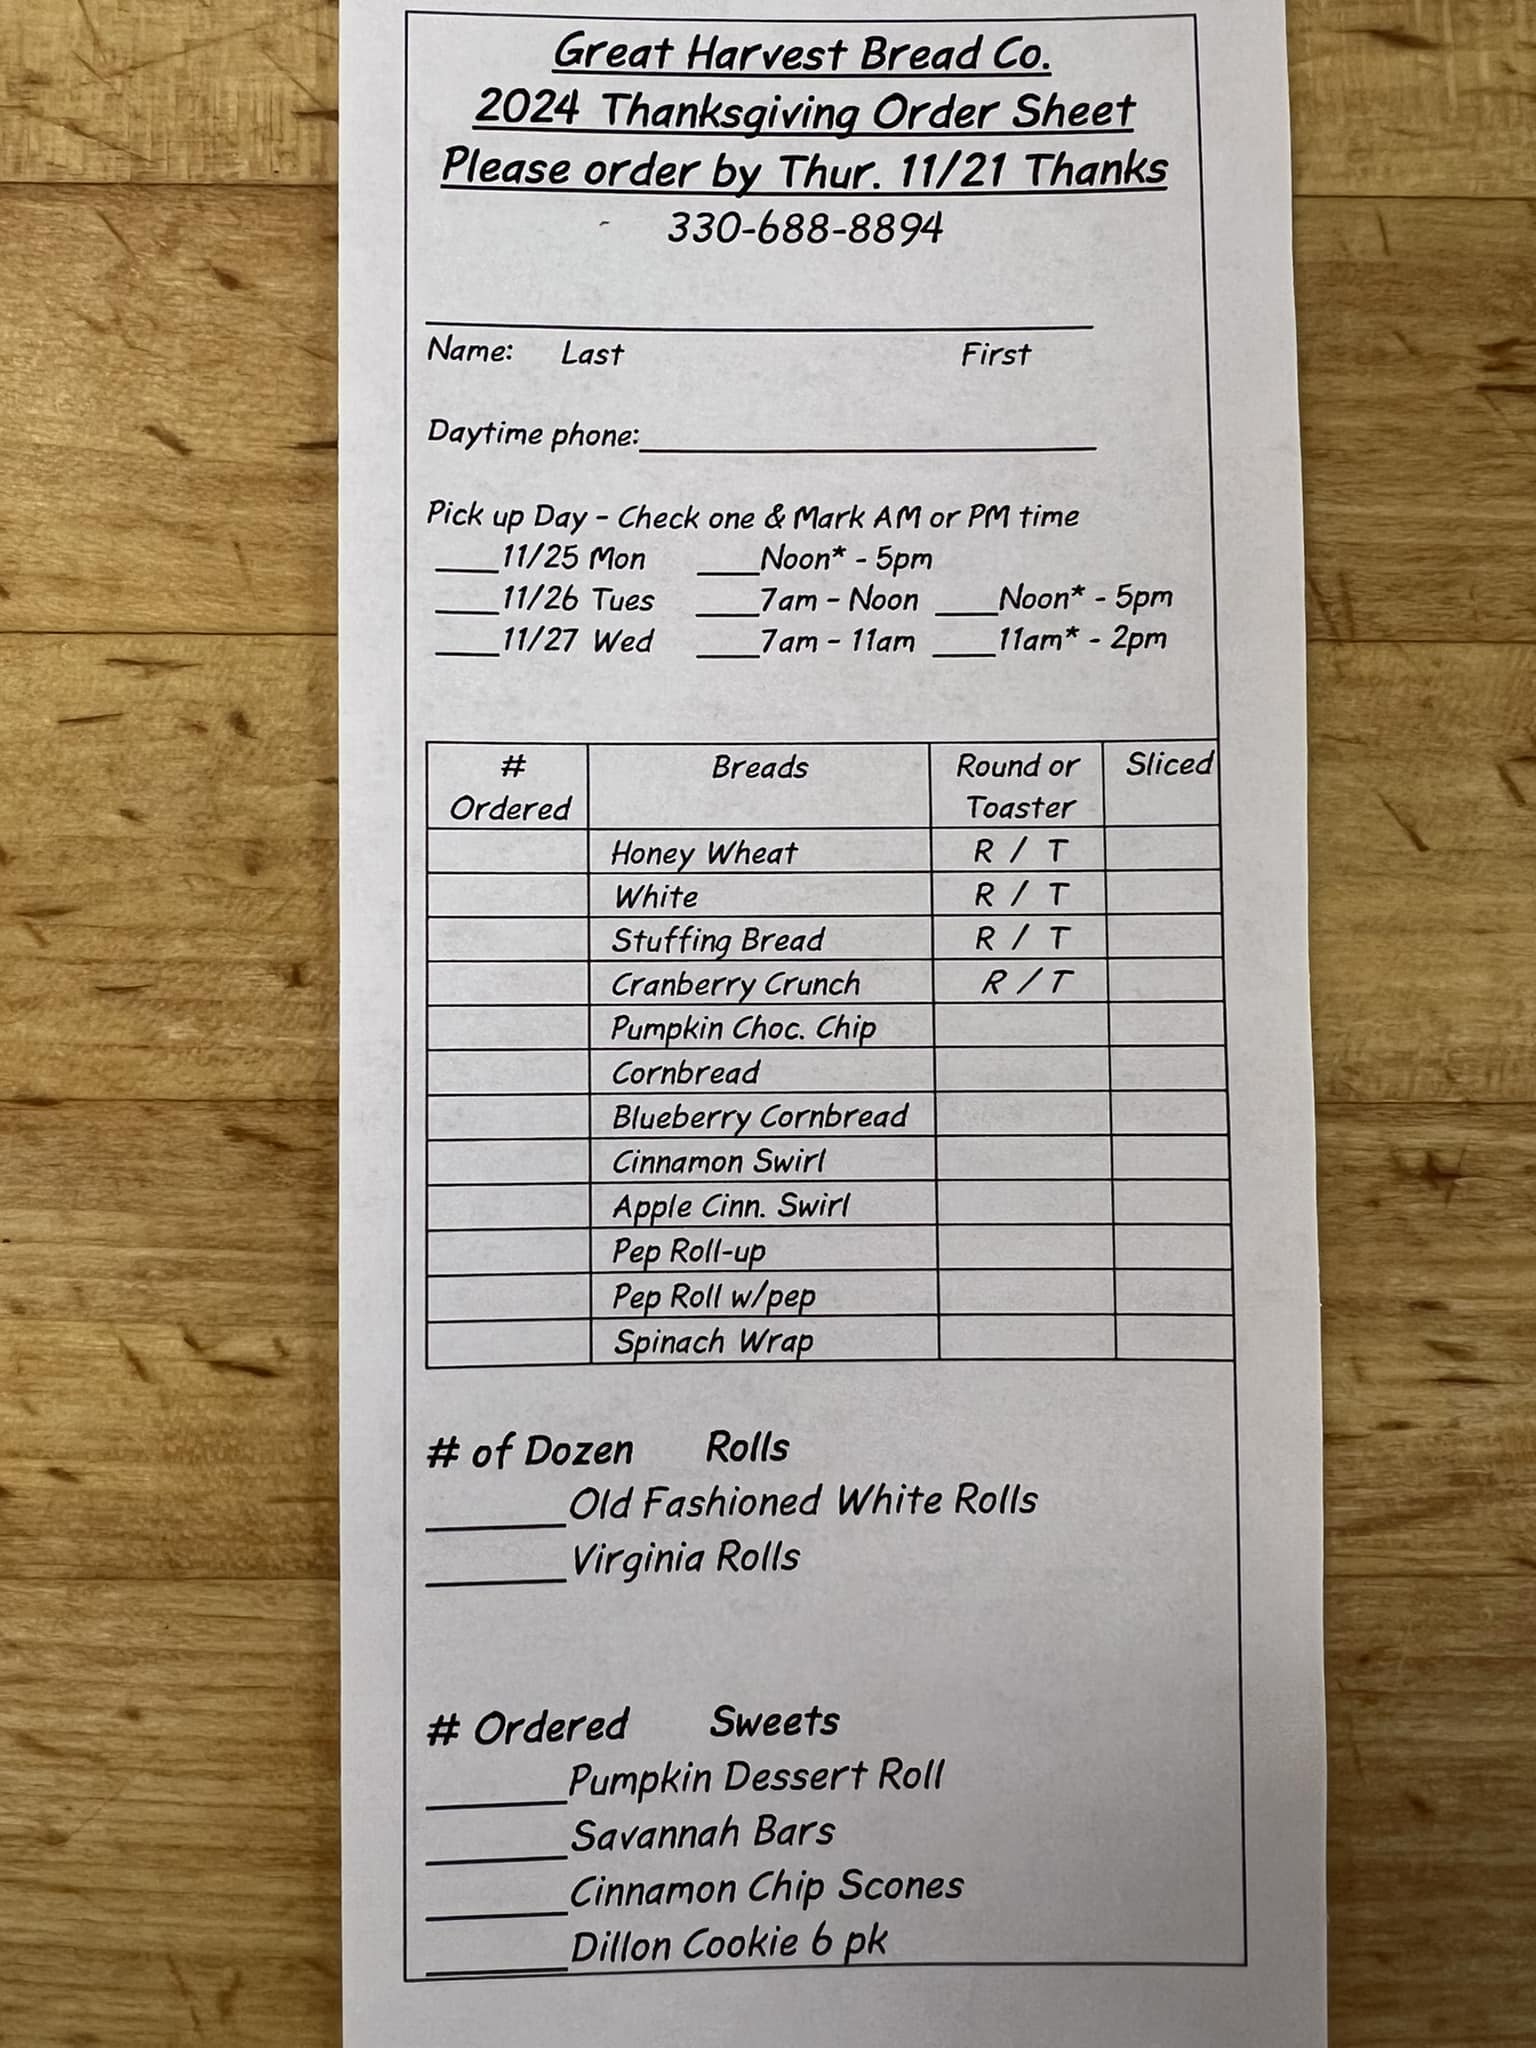 Great Harvest Bread Co.
2024 Thanksgiving Order Sheet
Please order by Thur. 11/21 Thanks
330-688-8894
Name: Last First
Daytime phone:
Pick up Day - Check one & Mark AM or PM time
____11/25 Mon ____Noon* - 5pm
____11/26 Tues ____7am - Noon ____Noon* - 5pm
____11/27 Wed ____7am - 11am ____11am* - 2pm
# Ordered Breads Round or Toaster Sliced
Honey Wheat R / T
White R / T
Stuffing Bread R / T
Cranberry Crunch R / T
Pumpkin Choc. Chip
Cornbread
Blueberry Cornbread
Cinnamon Swirl
Apple Cinn. Swirl
Pep Roll-up
Pep Roll w/pep
Spinach Wrap
# of Dozen Rolls
Old Fashioned White Rolls
Virginia Rolls
# Ordered Sweets
Pumpkin Dessert Roll
Savannah Bars
Cinnamon Chip Scones
Dillon Cookie 6 pk